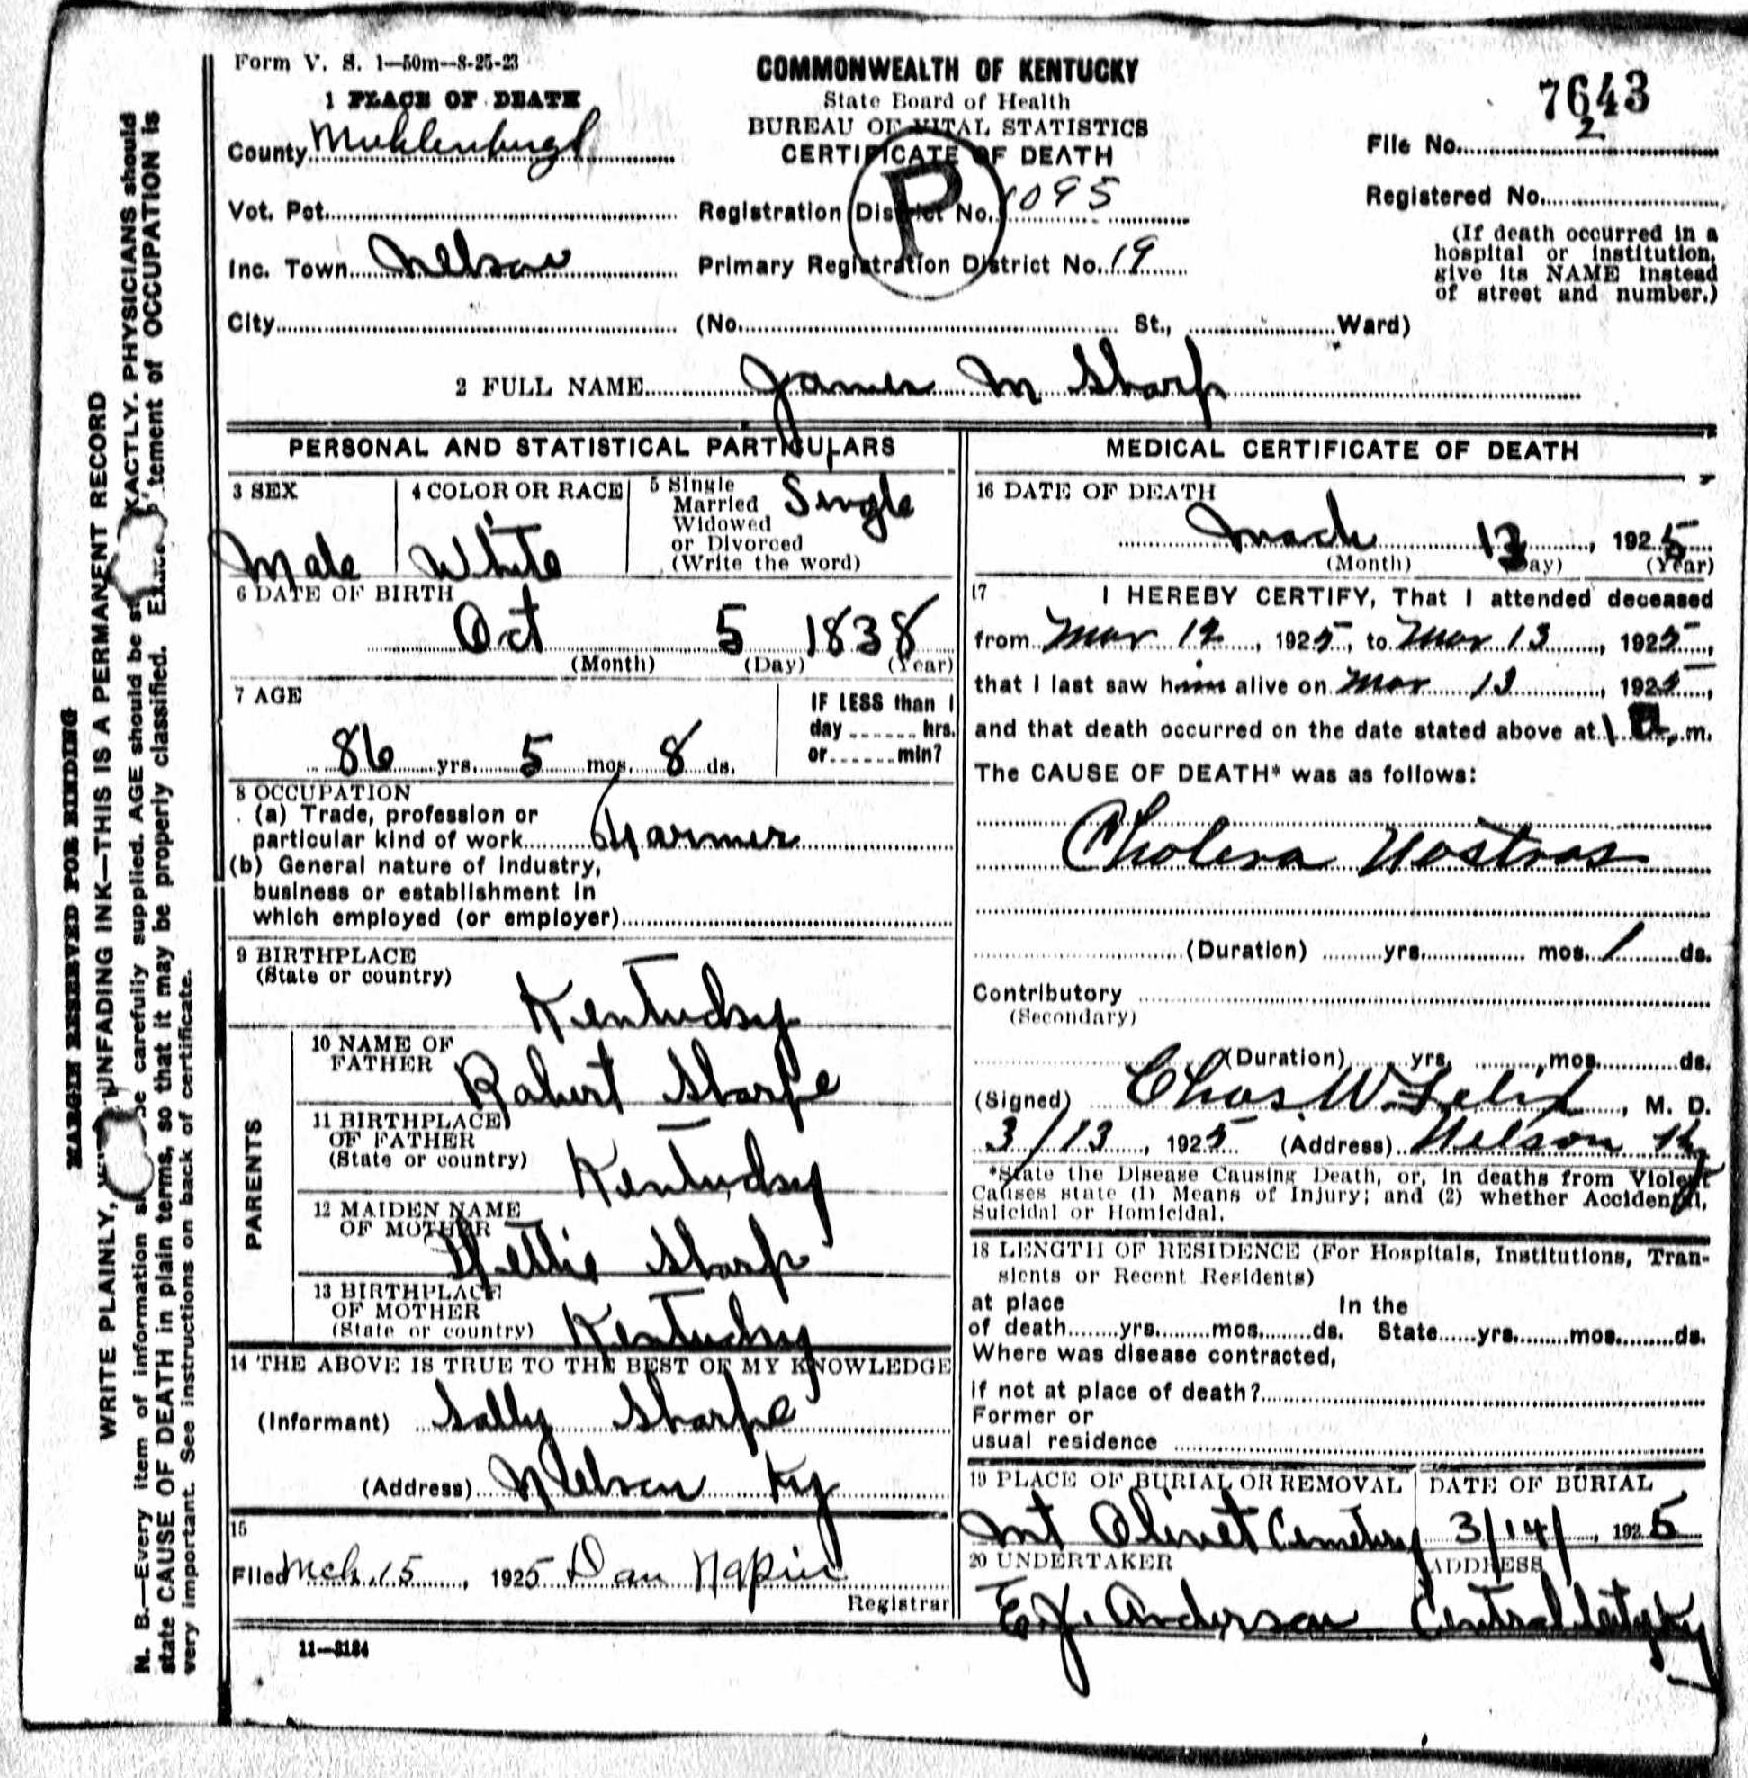 Form V. S. 1—50m—8-25-23
1 PLACE OF DEATH
County Muhlenburgh
Vot. Pct.
Inc. Town Nelson
City (No. St., Ward)
COMMONWEALTH OF KENTUCKY
State Board of Health
BUREAU OF VITAL STATISTICS
CERTIFICATE OF DEATH
P
Registration District No. 1095
Primary Registration District No. 19
7643
File No. 2
Registered No.
(If death occurred in a
hospital or institution,
give its NAME instead
of street and number.)
2 FULL NAME James M Sharp
PERSONAL AND STATISTICAL PARTICULARS
3 SEX
Male
4 COLOR OR RACE
White
5 Single
Married
Widowed
or Divorced
(Write the word)
Single
6 DATE OF BIRTH
Oct 5 1838
(Month) (Day) (Year)
7 AGE
86 yrs. 5 mos. 8 ds.
IF LESS than 1
day ...... hrs.
or ...... min?
8 OCCUPATION
(a) Trade, profession or
particular kind of work Farmer
(b) General nature of industry,
business or establishment in
which employed (or employer)
9 BIRTHPLACE
(State or country)
Kentucky
PARENTS
10 NAME OF
FATHER
Robert Sharpe
11 BIRTHPLACE
OF FATHER
(State or country)
Kentucky
12 MAIDEN NAME
OF MOTHER
Hettie Sharp
13 BIRTHPLACE
OF MOTHER
(State or country)
Kentucky
14 THE ABOVE IS TRUE TO THE BEST OF MY KNOWLEDGE
(Informant) Sally Sharpe
(Address) Nelson Ky
15
Filed Mch. 15, 1925 Dan Napier
Registrar
11—3184
MEDICAL CERTIFICATE OF DEATH
16 DATE OF DEATH
Mach 13, 1925
(Month) (Day) (Year)
17 I HEREBY CERTIFY, That I attended deceased
from Mar 12, 1925, to Mar 13, 1925,
that I last saw him alive on Mar 13, 1925,
and that death occurred on the date stated above at 1 m.
The CAUSE OF DEATH* was as follows:
Cholera Nostras
(Duration) yrs. mos. 1 ds.
Contributory
(Secondary)
(Duration) yrs. mos. ds.
(Signed) Chas. W. Felix, M. D.
3/13, 1925 (Address) Nelson Ky
*State the Disease Causing Death, or, in deaths from Violent
Causes state (1) Means of Injury; and (2) whether Accidental,
Suicidal or Homicidal.
18 LENGTH OF RESIDENCE (For Hospitals, Institutions, Tran-
sients or Recent Residents)
at place In the
of death yrs. mos. ds. State yrs. mos. ds.
Where was disease contracted,
If not at place of death?
Former or
usual residence
19 PLACE OF BURIAL OR REMOVAL
Mt Olivet Cemetery
DATE OF BURIAL
3/14/, 1925
20 UNDERTAKER
E. J. Anderson
ADDRESS
Central City Ky
MARGIN RESERVED FOR BINDING
WRITE PLAINLY, UNFADING INK—THIS IS A PERMANENT RECORD
N. B.—Every item of information be carefully supplied. AGE should be EXACTLY. PHYSICIANS should
state CAUSE OF DEATH in plain terms, so that it may be properly classified. of OCCUPATION is
very important. See instructions on back of certificate.